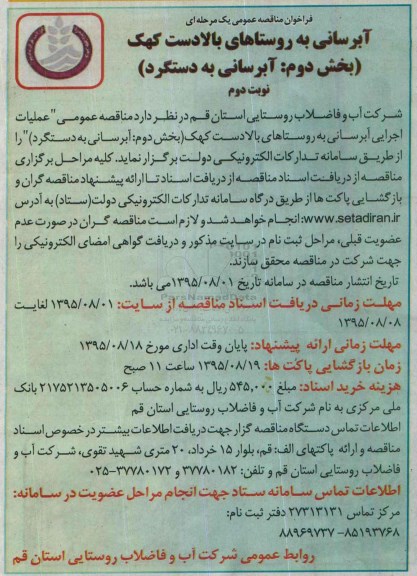 فراخوان مناقصه عمومی یک مرحله ای
آبرسانی به روستاهای بالادست کهک
(بخش دوم: آبرسانی به دستگرد)
نوبت دوم
شرکت آب و فاضلاب روستایی استان قم در نظر دارد مناقصه عمومی "عملیات
اجرایی آبرسانی به روستاهای بالادست کهک (بخش دوم: آبرسانی به دستگرد)" را
از طریق سامانه تدارکات الکترونیکی دولت برگزار نماید. کلیه مراحل برگزاری
مناقصه از دریافت اسناد مناقصه از دریافت اسناد تا ارائه پیشنهاد مناقصه گران و
بازگشایی پاکت ها از طریق درگاه سامانه تدارکات الکترونیکی دولت (ستاد) به آدرس
www.setadiran.ir: انجام خواهد شد و لازم است مناقصه گران در صورت عدم
عضویت قبلی، مراحل ثبت نام در سایت مذکور و دریافت گواهی امضای الکترونیکی را
جهت شرکت در مناقصه محقق سازند.
تاریخ انتشار مناقصه در سامانه تاریخ ۱۳۹۵/۰۸/۰۱ می باشد.
مهلت زمانی دریافت اسناد مناقصه از سایت: ۱۳۹۵/۰۸/۰۱ لغایت
۱۳۹۵/۰۸/۰۸
مهلت زمانی ارائه پیشنهاد: پایان وقت اداری مورخ ۱۳۹۵/۰۸/۱۸
زمان بازگشایی پاکت ها: ۱۳۹۵/۰۸/۱۹ ساعت ۱۱ صبح
هزینه خرید اسناد: مبلغ ۵۴۵,۰۰۰ ریال به شماره حساب ۲۱۷۵۲۱۳۵۰۵۰۰۶ بانک
ملی مرکزی به نام شرکت آب و فاضلاب روستایی استان قم
اطلاعات تماس دستگاه مناقصه گزار جهت دریافت اطلاعات بیشتر در خصوص اسناد
مناقصه و ارائه پاکتهای الف: قم، بلوار ۱۵ خرداد، ۲۰ متری شهید تقوی، شرکت آب و
فاضلاب روستایی استان قم و تلفن: ۳۷۷۸۰۱۸۲ و ۳۷۷۸۰۱۷۲-۰۲۵
اطلاعات تماس سامانه ستاد جهت انجام مراحل عضویت در سامانه:
مرکز تماس ۲۷۳۱۳۱۳۱ دفتر ثبت نام:
۸۵۱۹۳۷۶۸- ۸۸۹۶۹۷۳۷
روابط عمومی شرکت آب و فاضلاب روستایی استان قم